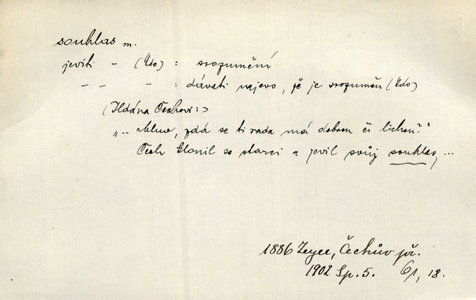 souhlas m.
jeviti - (kdo) : srozumění
- - - : dávati najevo, že je srozuměn (kdo)
(Hádá Čechovi:>
"... mluv, zdá se ti rada má dobrou či lichou?"
Čech klonil se starci a jevil svůj souhlas, ...
1886 Zeyer, Čechův př.
1902 Sp. 5. 61, 18.